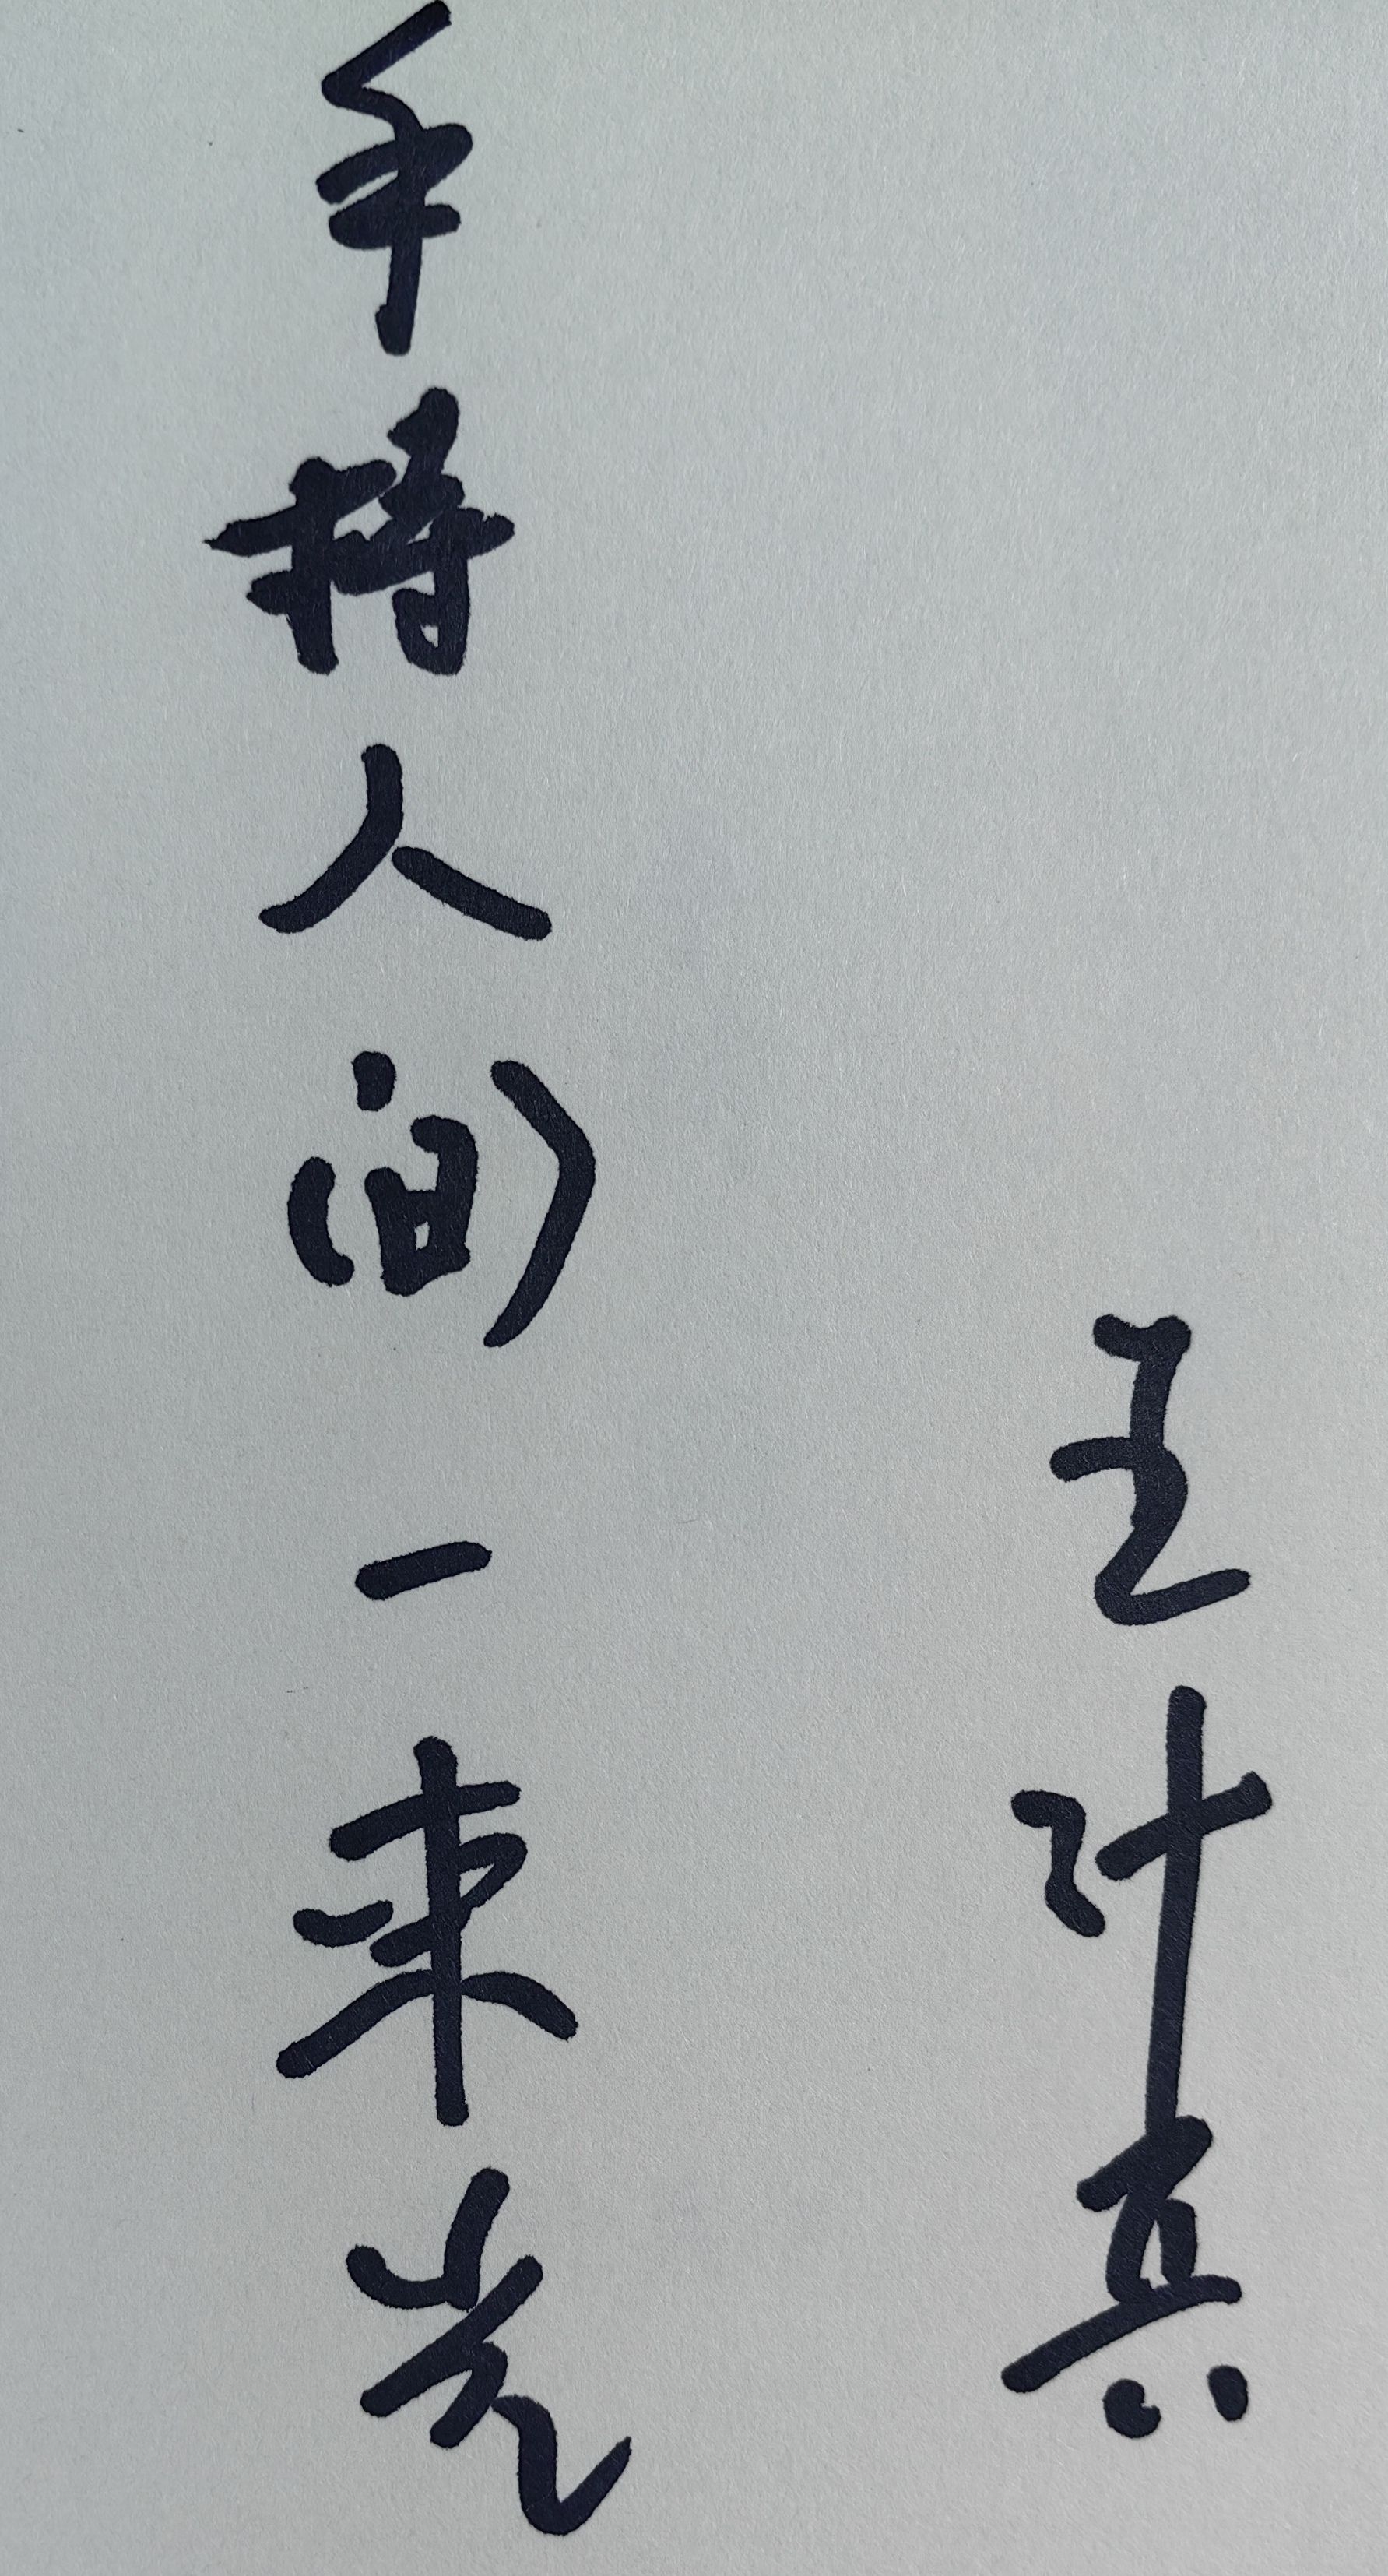 手持人间一束光
王计真